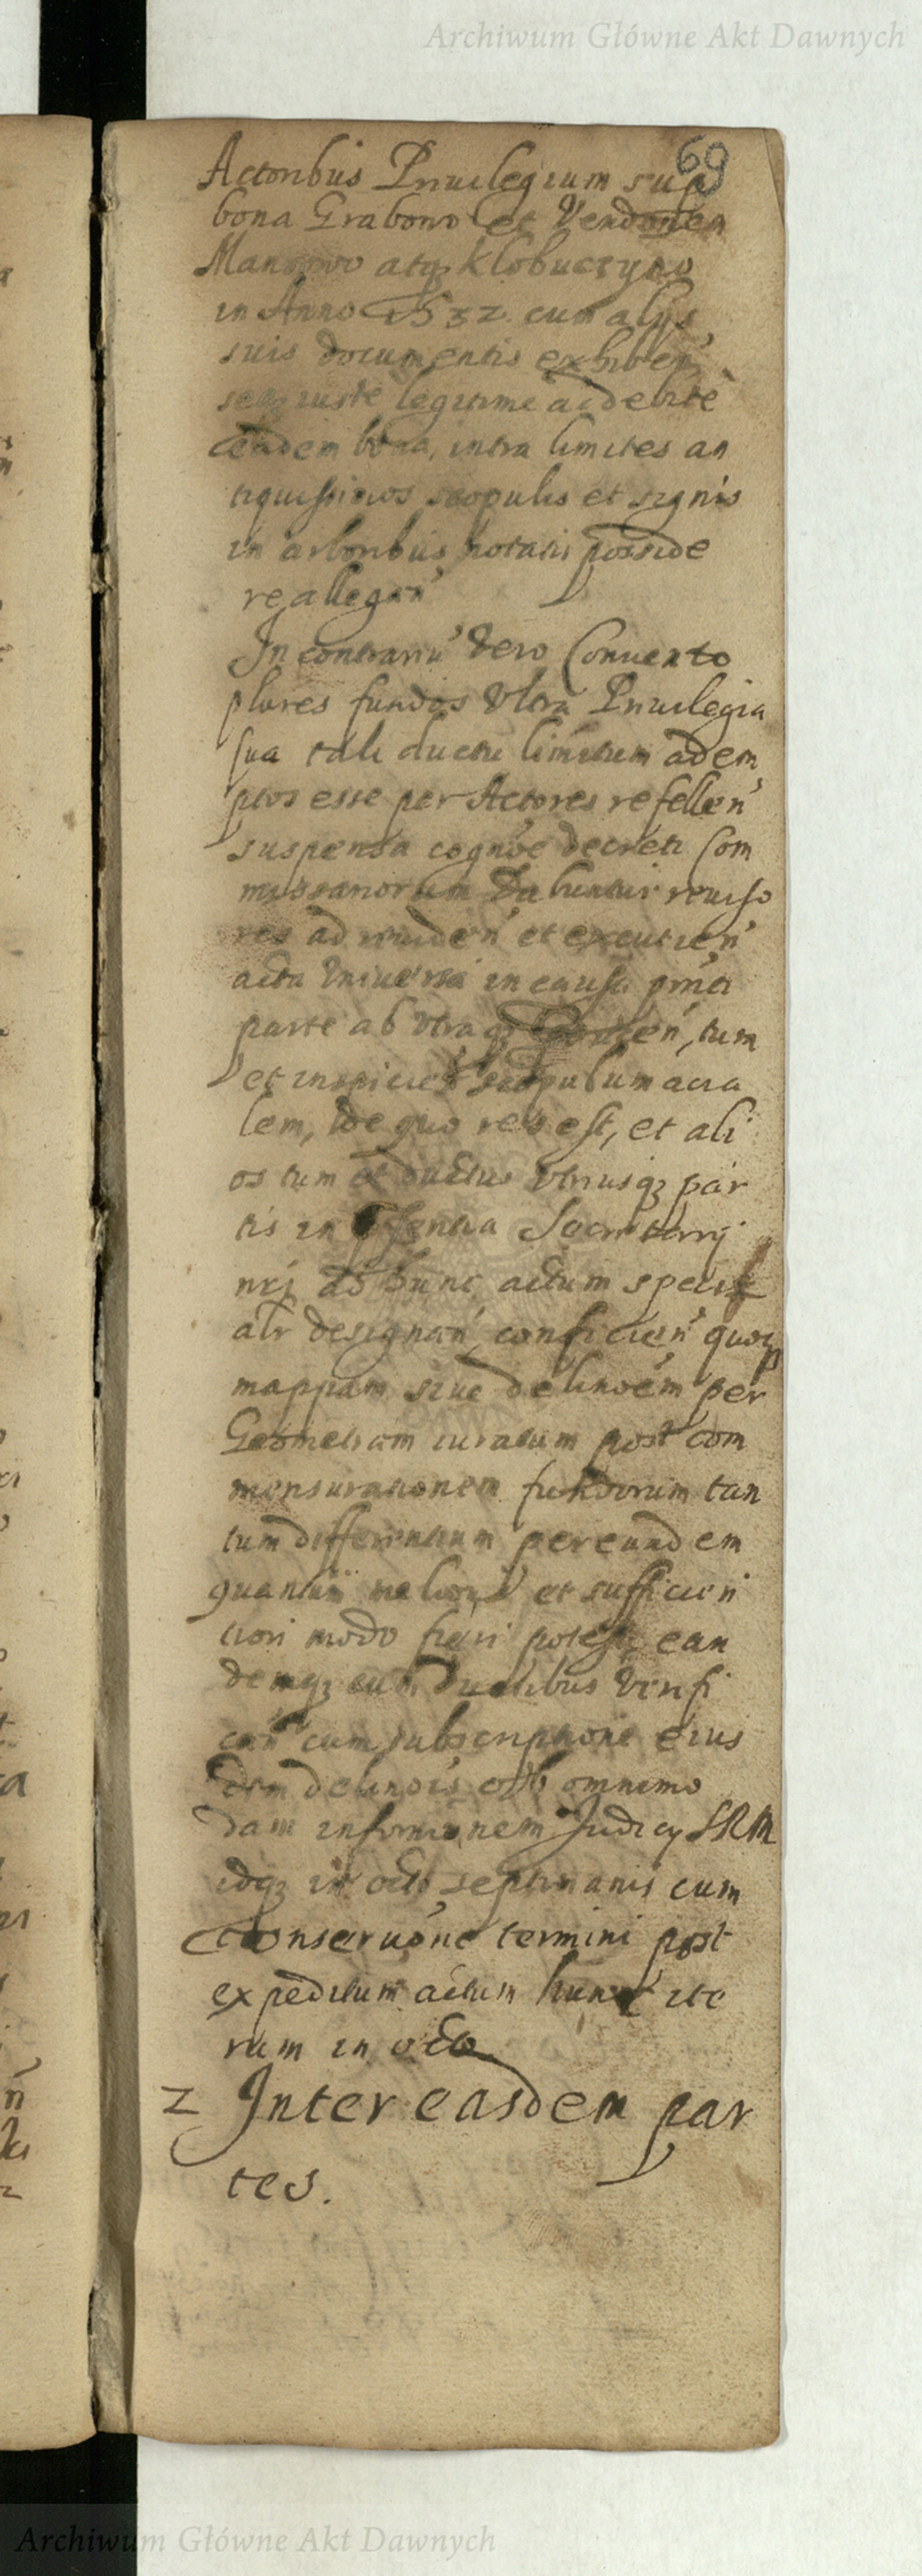 Archiwum Główne Akt Dawnych
69
Actoribus Priuilegium sup
bona Grabowo et
atq3 Klobuczyno
in Anno 1532. cum alijs
suis documentis exhiben'
seq3 iuste legitime ac de lite
eadem bona, intra limites an
tiquissimos scopulis et signis
in arboribus notatis posside
re allegan'
In contrariu' Vero Conuento
plures fundos Vltra Priuilegia
sua tali ductu limitum adem
ptos esse per Actores refellen'
suspensa cogn'oe decreti Com
missariorum Dabuntur reuiso
res ad reuiden' et excutien'
acta Vniuersa in causa
parte ab vtraq3 tum
et inspicien' scopulum acia
lem, de quo res est, et ali
os tum et ductus Vtriusq3 par
tis in Secretarij
nrj ad hunc actum speci
alr designan', conficien' quoq3
mappam siue delin'oem per
Geometram iuratum post com
mensurationem fundorum tan
tum differentium per eundem
quantum meliori et sufficien
tiori modo fieri potest, ean
demq3 cum ductibus Verifi
can' cum subscriptione eius
dem delin'ois ob omnimo
dam Judicij SRM
idq3 in octo septimanis cum
conseru'one termini post
expeditum actum hunc ite
rum in octo
2 Inter easdem par
tes.
Archiwum Główne Akt Dawnych